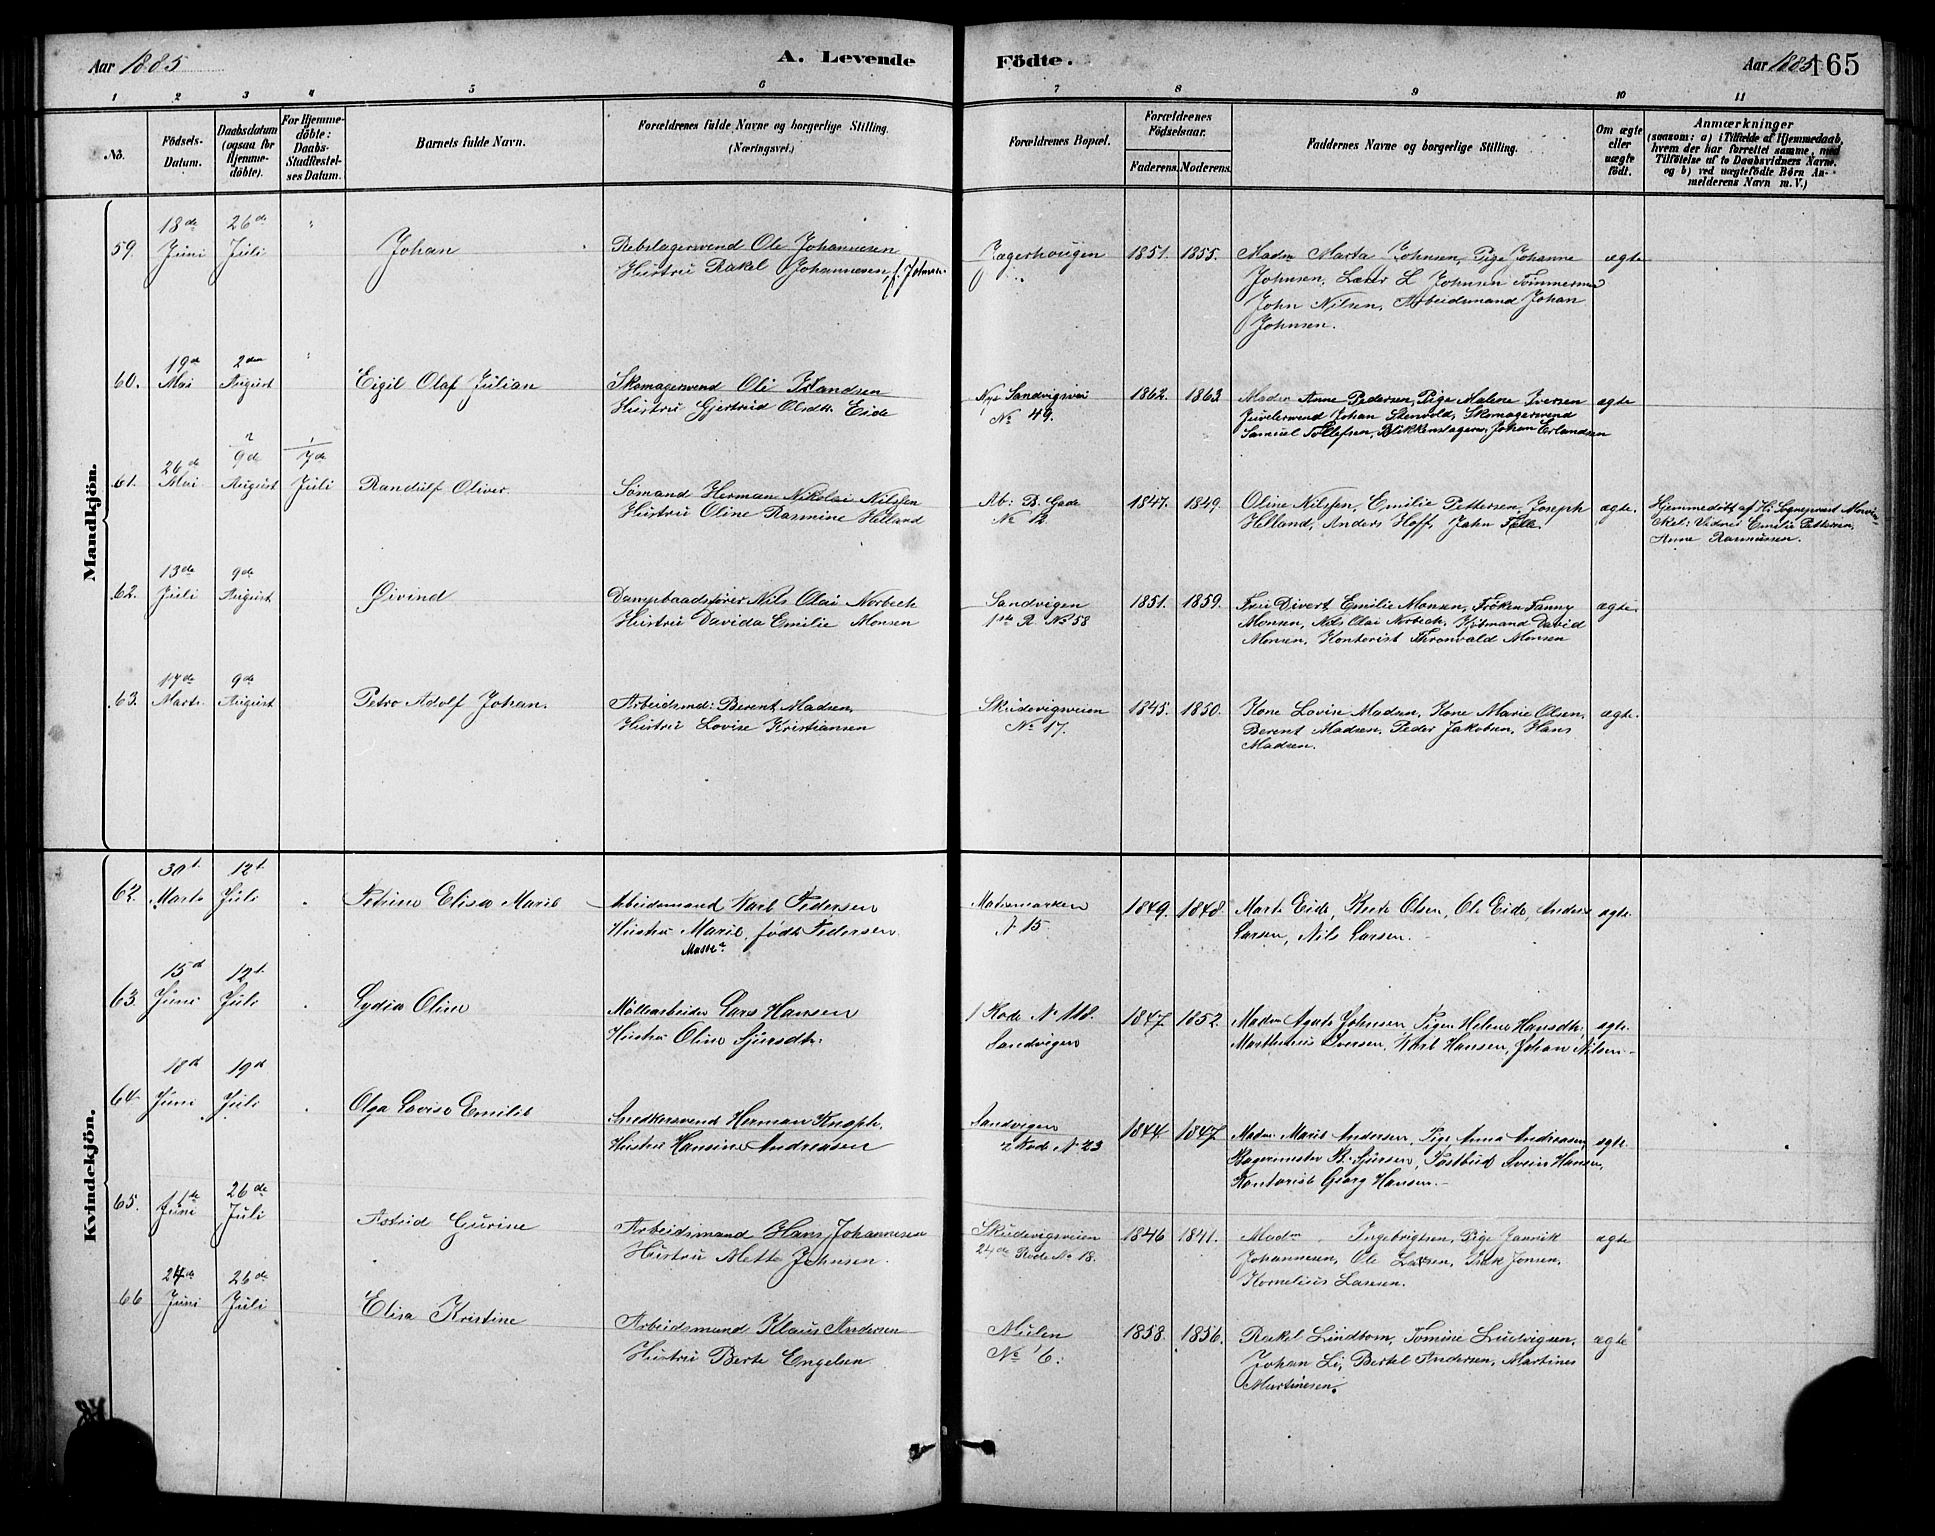 Aar 1885
A. Levende
Födte.
Aar 1885
165
1 2 3 4 5 6 7 8 9 10 11
No.
Födsels-Datum.
Daabsdatum (ogsaa for Hjemmedöbte).
For Hjemmedöbte: Daabs-Stadfestelses Datum.
Barnets fulde Navn.
Forældrenes fulde Navne og borgerlige Stilling.
(Næringsvei.)
Forældrenes Bopæl.
Forældrenes Födselsaar.
Faderens. Moderens.
Faddernes Navne og borgerlige Stilling.
Om ægte eller uægte födt.
Anmærkninger
(saasom: a) i Tilfælde af Hjemmedaab, hvem der har forrettet samme, med Tilföielse af to Daabsvidners Navne, og b) ved uægtefödte Börn Anmelderens Navn m. V.)
Mandkjön.
59. 18de Juni 26de Juli " Johan
Rebslagersvend Ole Johannesen
Hustru Rakel Johannesen, f. Johnsen
Jægerhougen 1851. 1855.
Madm Marta Johnsen, Pige Johanne
Johnsen, Lærer L Johnsen Tømmermand
John Nilsen, Arbeidsmand Johan
Johnsen.
ægte
60. 19de Mai 2den August " Eigil Olaf Julian
Skomagersvend Ole Erlandsen
Hustru Gjertrud Olsdtr Eide
Nye Sandvigsvei
No 49.
1862. 1863
Madm Anne Pedersen, Pige Malene Iversen
Juvelersvend Johan Stenvold, Skomagersvend
Samuel Tollefsen, Blikkenslagersv Johan Erlandsen
ægte
61. 26de Mai 9de August 7de Juli Randulf Oliver.
Sømand Herman Nikolai Nilssen
Hustru Oline Rasmine Helland
Ab: B. Gade
No 12
1847. 1849.
Oline Nilssen, Emilie Pettersen, Joseph
Helland, Anders Hoff, John Felle.
ægte.
Hjemmedøbt af Hr Sogneprest
Vidner Emilie Pettersen,
Anne Rasmussen.
62. 13de Juli 9de August Øivind
Dampbaadsfører Nils Olai Norbech
Hustru Davida Emilie Monsen
Sandvigen
1ste R. No 58
1851. 1859.
Fru Divert Emilie Monsen, Frøken Fanny
Monsen, Nils Olai Norbech, Kjøbmand David
Monsen, Kontorist Thronvald Monsen
ægte.
63. 17de Marts 9de August Petro Adolf Johan.
Arbeidsmd: Berent Madsen,
Hustru Lovise Kristiansen
Skudevigsveien
No 17.
1845. 1850.
Kone Lovise Madsen, Kone Marie Olsen,
Berent Madsen, Peder Jakobsen, Hans
Madsen.
ægte.
Kvindekjön.
62. 30t Marts 12t Juli Petrine Elisa Marie
Arbeidsmand Karl Pedersen
Hustru Marie født Pedersen.
Marte?
Mulemarken
N 15
1849. 1848.
Marte Eide, Berte Olsen, Ole Eide, Anders
Larsen, Nils Larsen.
ægte.
63 15d Juni 12t Juli Lydia Oline
Möllearbeider Lars Hansen
Hustru Oline Sjursdtr.
1 Rode No 118.
Sandvigen
1847 1852.
Madm Agate Johnsen, Pigen Helene Hansdtr,
Marthinius Iversen, Karl Hansen, Johan Nilsen
ægte.
64. 18d Juni 19d Juli Olga Lovise Emilie
Snedkersvend Herman Knoph.
Hustru Hansine Andreasen
Sandvigen
2 Rode N 23
1844. 1847.
Madm Marie Andersen, Pige Anna Andreasen,
Bagermester B. Sjursen, Postbud Svein Hansen,
Kontorist Georg Hansen.
ægte.
65. 11de Juni 26de Juli Astrid Gurine
Arbeidsmand Hans Johannesen
Hustru Mette Johnsen.
Skudevigsveien
24de Rode No 18.
1846 1841.
Madm Ingebrigtsen, Pige Jannik
Johannesen, Ole Larsen, Isak Jonsen,
Kornelius Larsen.
ægte
66 24de Juni 26de Juli Elisa Kristine
Arbeidsmand Klaus Andersen
Hustru Berte Engelsen.
Mulen
No 16.
1858. 1856.
Rakel Lindtom, Tomine Ludvigsen,
Johan Li, Bertel Andersen, Martines
Martinesen.
ægte